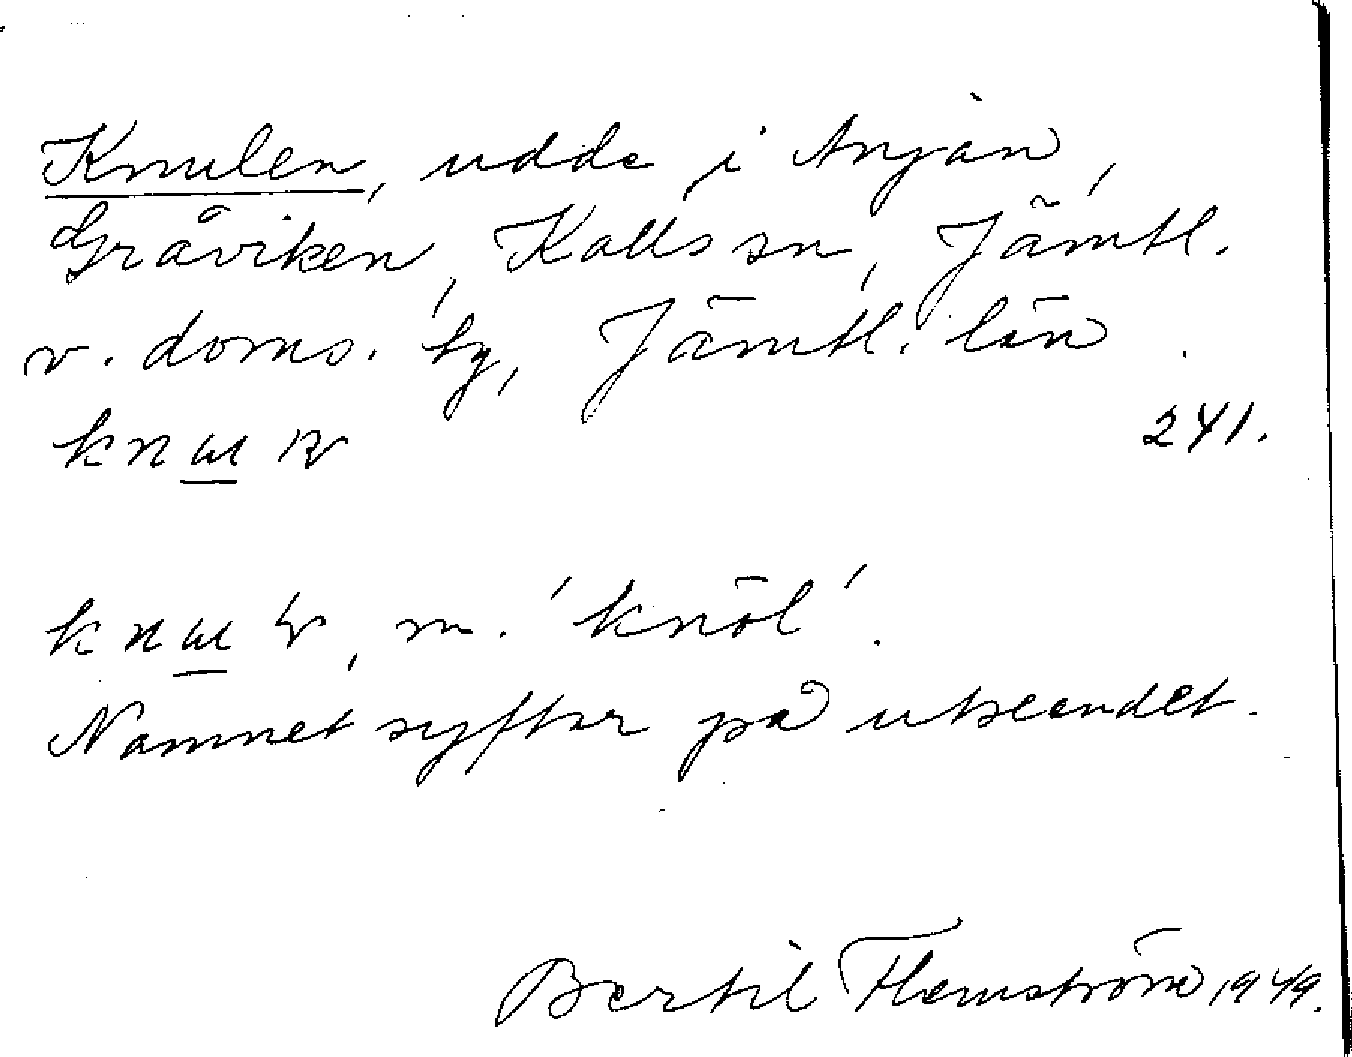 Knulen, udde i Anjan,
Gråviken, Kalls sn, Jämtl.
v. doms. by, Jämtl. län.
241.
m. 'knöl'.
Namnet syftar på utseendet.
Bertil Flemström 1949.